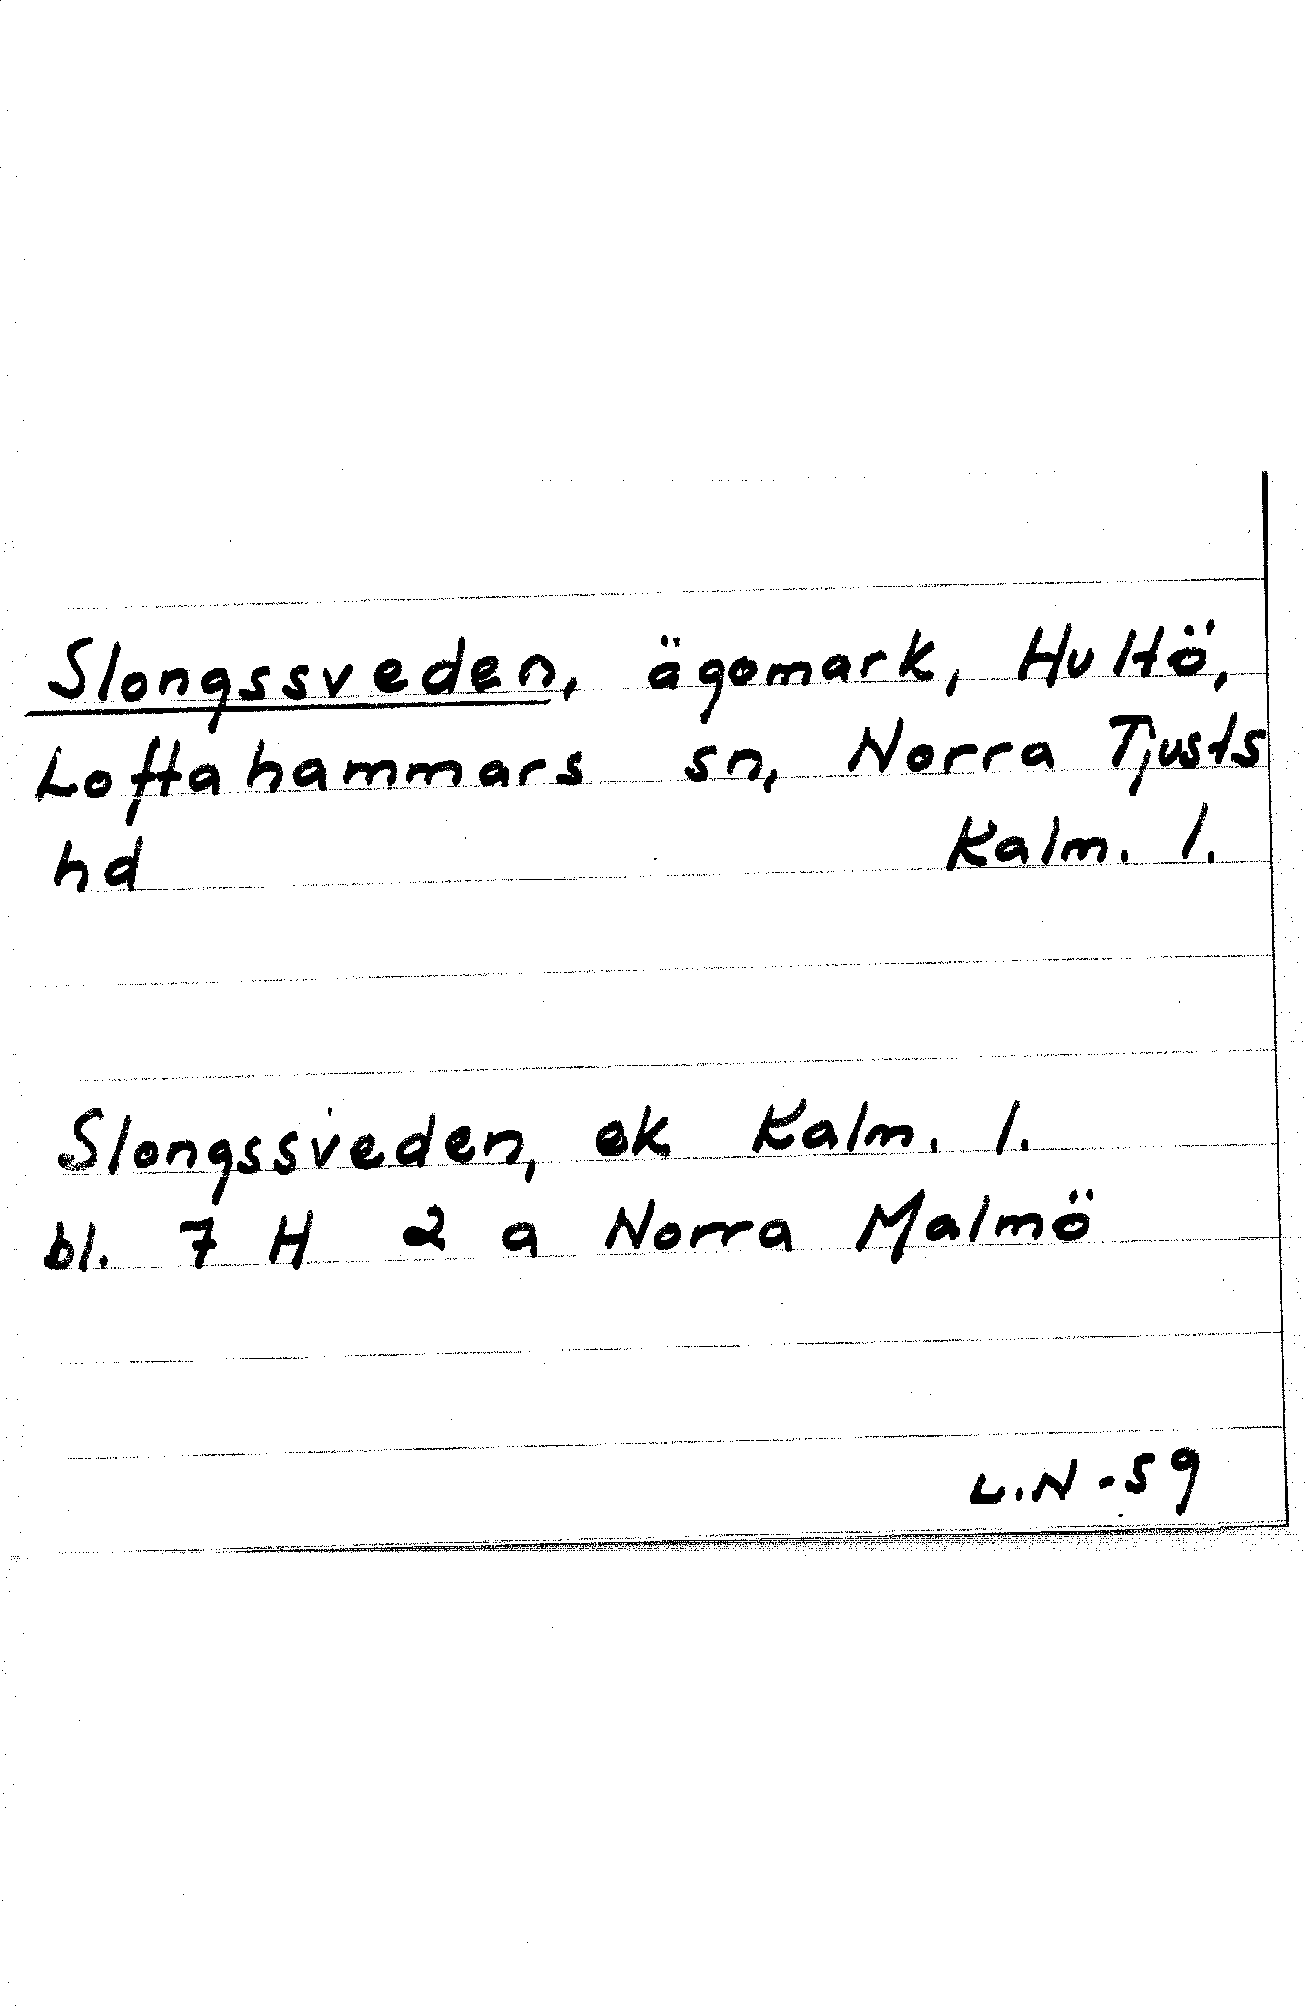 Slongssveden, ägomark, Hultö,
Loftahammars sn, Norra Tjusts
hd Kalm. l.
Slongssveden, ek Kalm. l.
bl. 7 H 2 a Norra Malmö
L.N -59